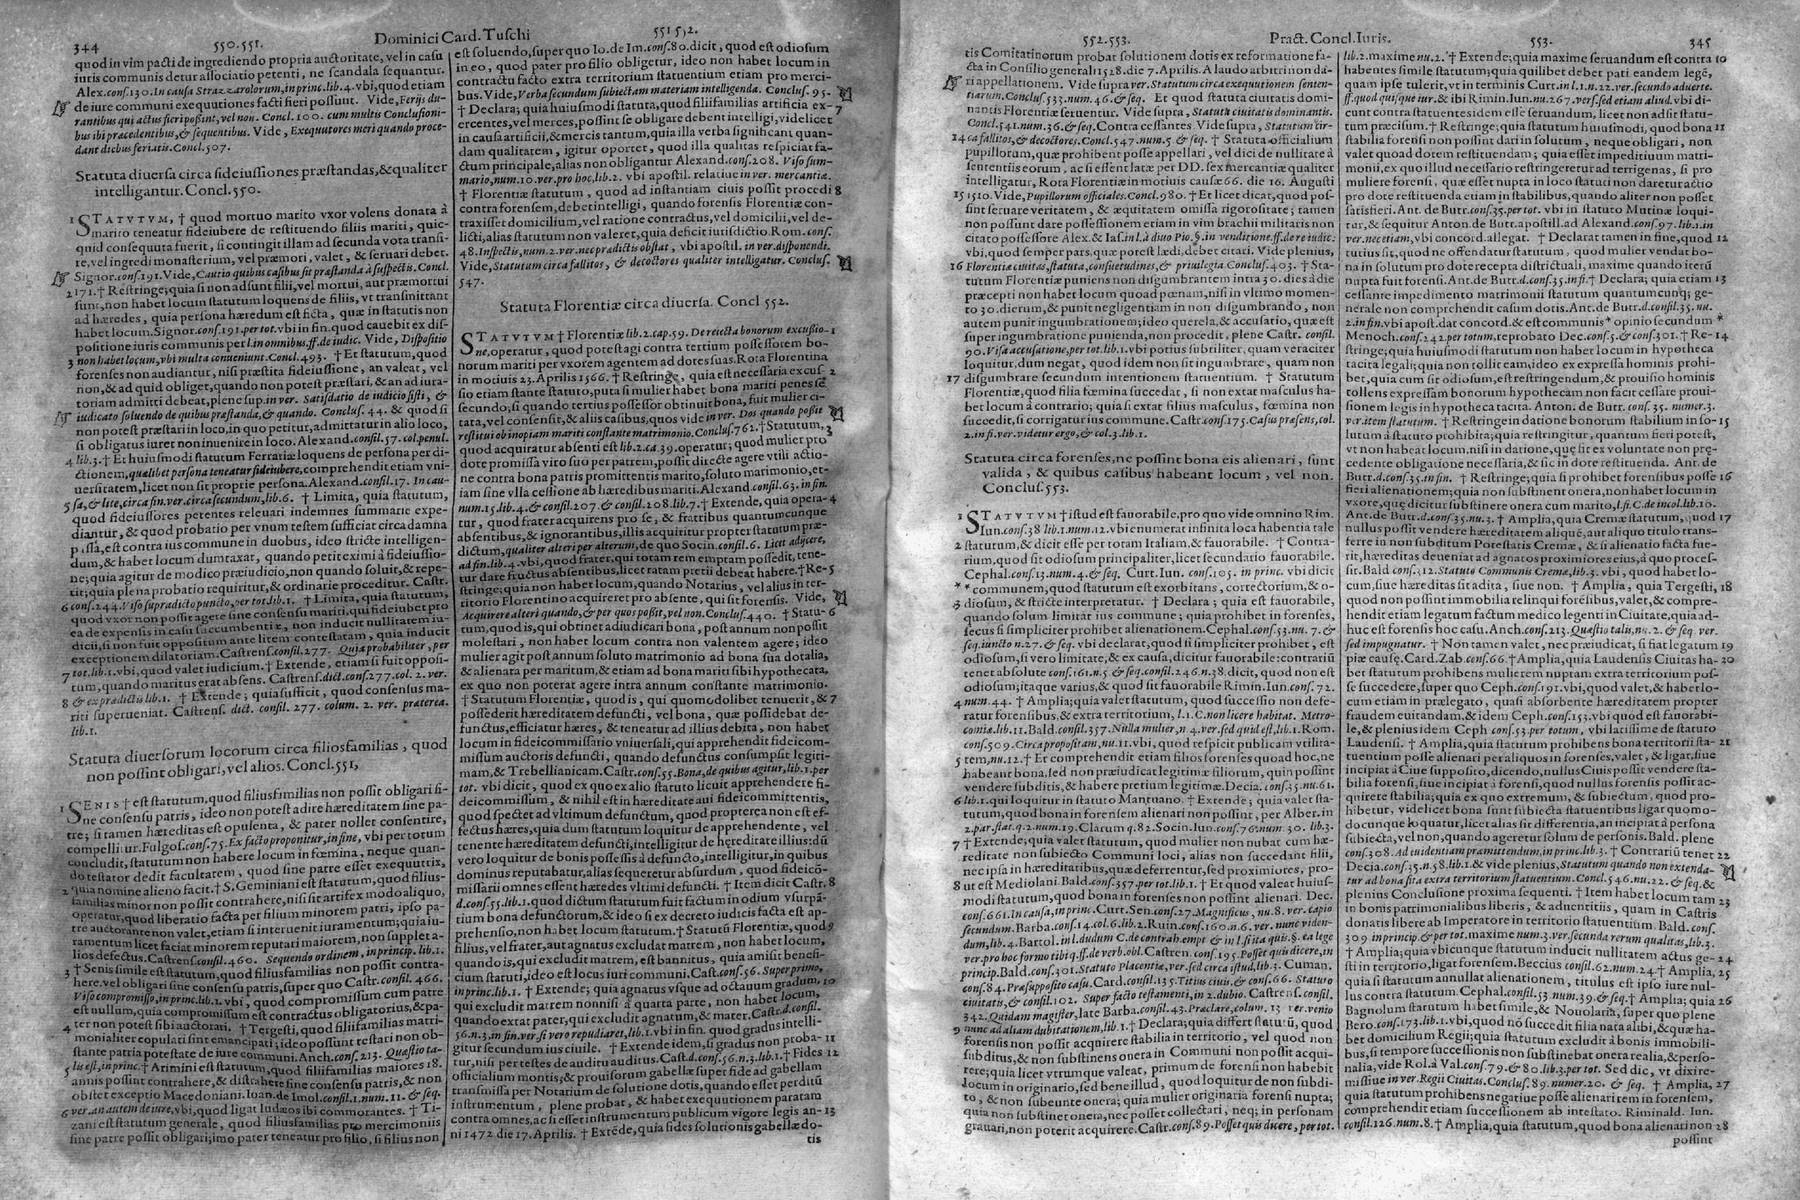 344 550.551. Dominici Card. Tuschi 551 5,2.
quod in vim pacti de ingrediendo propria auctoritate, vel in casu
iuris communis detur associatio petenti, ne scandala sequantur.
Alex.conf.130.In causa Strazzarolorum,in princ.lib.4.vbi,quod etiam
de iure communi exequutiones facti fieri possunt. Vide, Ferijs du-
rantibus qui actus fieri possint, vel non. Concl.100. cum multis Conclusioni-
bus ibi præcedentibus,& sequentibus. Vide, Exequutores meri quando proce-
dant diebus feriatis.Concl.507.
Statuta diuersa circa fideiussiones præstandas,&qualiter
intelligantur. Concl.550.
1 STATVTVM, † quod mortuo marito vxor volens donata à
marito teneatur fideiubere de restituendo filiis mariti, quic-
quid consequuta fuerit, si contingit illam ad secunda vota transi-
re,vel ingredi monasterium, vel præmori, valet, & seruari debet.
Signor.conf.191.Vide, Cautio quibus casibus sit præstanda à suspectis.Concl.
2 171.† Restringe;quia si non adsunt filii,vel mortui, aut præmortui
sunt,non habet locum statutum loquens de filiis, vt transmittant
ad hæredes, quia persona hæredum est ficta, quæ in statutis non
habet locum.Signor.conf.191.per tot.vbi in fin. quod cauebit ex dis-
positione iuris communis per l.in omnibus.ff.de iudic. Vide, Dispositio
3 non habet locum,vbi multa conueniunt.Concl.493. † Et statutum, quod
forenses non audiantur, nisi præstita fideiussione, an valeat, vel
non,& ad quid obliget,quando non potest præstari,& an ad iura-
toriam admitti debeat,plene sup.in ver. Satisdatio de iudicio sisti, &
iudicato soluendo de quibus præstanda,& quando. Concluf. 44. & quod si
non potest præstari in loco,in quo petitur,admittatur in alio loco,
si obligatus iuret non inuenire in loco. Alexand.consil.57.col.penul.
4 lib.3.† Et huiusmodi statutum Ferrariæ loquens de persona per di-
ctionem,qualibet persona teneatur fideiubere,comprehendit etiam vni-
uersitatem,licet non sit proprie persona.Alexand.consil.17. In cau-
5 sa,& lite,circa fin.ver.circa secundum,lib.6. † Limita, quia statutum,
quod fideiussores petentes releuari indemnes summarie expe-
diantur, & quod probatio per vnum testem sufficiat circa damna
passa,est contra ius commune in duobus, ideo stricte intelligen-
dum,& habet locum dumtaxat, quando petit eximi à fideiussio-
ne;quia agitur de modico præiudicio,non quando soluit,& repe-
tit;quia plena probatio requiritur,& ordinarie proceditur. Castr.
6 conf.244.Viso supradicto puncto,per tot.lib.1. † Limita,quia statutum,
quod vxor non possit agere sine consensu mariti,qui fideiubet pro
ea de expensis in casu succumbentiæ, non inducit nullitatem iu-
dicii,si non fuit oppositum ante litem contestatam, quia inducit
exceptionem dilatoriam. Castrens.consil.277. Quia probabiliter, per
7 tot.lib.1.vbi,quod valet iudicium.† Extende, etiam si fuit opposi-
tum,quando maritus erat absens. Castrens.dict.conf.277.col. 2. ver.
8 & ex prædictis lib.1. † Extende ; quia sufficit, quod consensus ma-
riti superueniat. Castrens. dict. consil. 277. colum. 2. ver. præterea.
lib.1.
Statuta diuersorum locorum circa filiosfamilias , quod
non possint obligari,vel alios. Concl.551,
1 SENIS † est statutum,quod filiusfamilias non possit obligari si-
ne consensu patris, ideo non potest adire hæreditatem sine pa-
tre; si tamen hæreditas est opulenta, & pater nollet consentire,
compellitur.Fulgos.conf.75.Ex facto proponitur,in fine, vbi per totum
concludit,statutum non habere locum in fœmina, neque quan-
do testator dedit facultatem , quod sine patre esset exequutrix,
2 quia nomine alieno facit.† S.Geminiani est statutum,quod filius-
familias minor non possit contrahere,nisi sit artifex modo aliquo,
operatur,quod liberatio facta per filium minorem patri, ipso pa-
tre auctorante non valet,etiam si interuenit iuramentum;quia iu-
ramentum licet faciat minorem reputati maiorem,non supplet a-
lios defectus.Castrens.consil.460. Sequendo ordinem,in princip.lib.1.
3 † Senis simile est statutum,quod filiusfamilias non possit contra-
here,vel obligari sine consensu patris,super quo Castr.consil.466.
Viso compromisso,in princ.lib.1.vbi , quod compromissum cum patre
est nullum,quia compromissum est contractus obligatorius,& pa-
4 ter non potest sibi auctorari. † Tergesti,quod filiifamilias matri-
monialiter copulati sint emancipati;ideo possunt testari non ob-
stante patria potestate de iure communi.Anch.conf.213.Quæstio ta-
5 lis est,in princ.† Arimini est statutum,quod filiifamilias maiores 18.
annis possint contrahere,& distrahere sine consensu patris,& non
obstet exceptio Macedoniani.Ioan.de Imol.consil.1.num.11.& seq.
6 ver.an autem de iure,vbi,quod ligat Iudæos ibi commorantes. † Ti-
zani est statutum generale , quod filiusfamilias pro mercimoniis
sine patre possit obligari;imo pater teneatur pro filio,si filius non
est soluendo,super quo Io.de Im.conf.80.dicit, quod est odiosum
in eo, quod pater pro filio obligetur, ideo non habet locum in
contractu facto extra territorium statuentium etiam pro merci-
bus. Vide,Verba secundum subiectam materiam intelligenda. Concluf.95.
† Declara; quia huiusmodi statuta, quod filiifamilias artificia ex- 7
ercentes,vel merces,possint se obligare debent intelligi,videlicet
in causa artificii,& mercis tantum,quia illa verba significant quan-
dam qualitatem, igitur oportet, quod illa qualitas respiciat fa-
ctum principale,alias non obligantur Alexand.conf.208. Viso sum-
mario,num.10.ver.pro hoc,lib.2. vbi apostil. relatiue in ver. mercantiæ.
† Florentiæ statutum , quod ad instantiam ciuis possit procedi 8
contra forensem,debet intelligi, quando forensis Florentiæ con-
traxisset domicilium,vel ratione contractus,vel domicilii,vel de-
licti,alias statutum non valeret,quia deficit iurisdictio.Rom.conf.
48.Inspectis,num.2.ver.nec prædictis obstat , vbi apostil. in ver.disponendi.
Vide,Statutum circa fallitos, & decoctores qualiter intelligatur. Concluf.
547.
Statuta Florentiæ circa diuersa. Concl 552.
STATVTVM † Florentiæ lib.2.cap.59. De reiecta bonorum excussio- 1
ne,operatur , quod potest agi contra tertium possessorem bo-
norum mariti per vxorem agentem ad dotes suas.Rota Florentina
in motiuis 23.Aprilis 1566. † Restringe, quia est necessaria excus- 2
sio etiam stante statuto;puta si mulier habet bona mariti penes se
secundo;si quando tertius possessor obtinuit bona,fuit mulier ci-
tata,vel consensit,& aliis casibus,quos vide in ver. Dos quando possit
restitui ob inopiam mariti constante matrimonio.Concluf.762.† Statutum, 3
quod acquiratur absenti est lib.2.ca.39.operatur; quod mulier pro
dote promissa viro suo per patrem,possit directe agere vtili actio-
ne contra bona patris promittentis marito,soluto matrimonio,et-
iam sine vlla cessione ab hæredibus mariti.Alexand.consil.63.in fin.
num.15.lib.4.& consil.207.& consil.208.lib.7.† Extende, quia opera- 4
tur, quod frater acquirens pro se, & fratribus quantumcunque
absentibus,& ignorantibus,illis acquiritur propter statutum præ-
dictum,qualiter alteri per alterum,de quo Socin.consil.6. Licet adijcere,
ad fin.lib.4.vbi,quod frater,qui totam rem emptam possedit, tene-
tur dare fructus absentibus,licet ratam pretii debeat habere.† Re- 5
stringe;quia non habet locum,quando Notarius , vel alius in ter-
ritorio Florentino acquireret pro absente, qui sit forensis. Vide,
Acquirere alteri quando,& per quos possit,vel non.Concluf.440. † Statu- 6
tum,quod is,qui obtinet adiudicari bona , post annum non possit
molestari , non habet locum contra non valentem agere; ideo
mulier agit post annum soluto matrimonio ad bona sua dotalia,
& alienata per maritum,& etiam ad bona mariti sibi hypothecata,
ex quo non poterat agere intra annum constante matrimonio.
† Statutum Florentiæ , quod is , qui quomodolibet tenuerit,& 7
possederit hæreditatem defuncti, vel bona, quæ possidebat de-
functus,efficiatur hæres, & teneatur ad illius debita , non habet
locum in fideicommissario vniuersali,qui apprehendit fideicom-
missum auctoris defuncti , quando defunctus consumpsit legiti-
mam,& Trebellianicam. Castr.conf.55.Bona,de quibus agitur,lib.1.per
tot. vbi dicit , quod ex quo ex alio statuto licuit apprehendere fi-
deicommissum , & nihil est in hæreditate aui fideicommittentis,
quod spectet ad vltimum defunctum, quod propterea non est ef-
fectus hæres,quia dum statutum loquitur de apprehendente, vel
tenente hæreditatem defuncti,intelligitur de hæreditate illius:dū
vero loquitur de bonis possessis à defuncto,intelligitur,in quibus
dominus reputabatur,alias sequeretur absurdum , quod fideicō-
missarii omnes essent hæredes vltimi defuncti. † Item dicit Castr. 8
d.conf.55.lib.1.quod dictum statutum fuit factum in odium vsurpā-
tium bona defunctorum,& ideo si ex decreto iudicis facta est ap-
prehensio,non habet locum statutum. † Statutū Florentiæ,quod 9
filius,vel frater,aut agnatus excludat matrem , non habet locum,
quando is,qui excludit matrem,est bannitus, quia amisit benefi-
cium statuti,ideo est locus iuri communi.Cast.conf.56. Super primo,
in princ.lib.1. † Extende; quia agnatus vsque ad octauum gradum, 10
qui excludit matrem non nisi à quarta parte , non habet locum,
quando extat pater,qui excludit agnatum,& mater.Castr.d.consil.
56.n.3.in fin.ver.si vero repudiaret,lib.1.vbi in fin. quod gradus intelli-
gitur secundum ius ciuile. † Extende idem,si gradus non proba- 11
tur,nisi per testes de auditu auditus. Cast.d.conf.56.n.3.lib.1.† Fides 12
officialium montis;& prouisorum gabellæ super fide ad gabellam
transmissa per Notarium de solutione dotis,quando esset perditū
instrumentum , plene probat, & habet exequutionem paratam
contra omnes,ac si esset instrumentum publicum vigore legis an- 13
ni 1472 die 17.Aprilis. † Extēde, quia fides solutionis gabellæ do-
tis
552.553. Pract. Concl.Iuris. 553. 345
tis Comitatinorum probat solutionem dotis ex reformatione fa-
cta in Consilio generali 1528.die 7.Aprilis. A laudo arbitri non da-
ri appellationem. Vide supra ver.Statutum circa exequutionem senten-
tiarum.Concluf.533.num.46.& seq. Et quod statuta ciuitatis domi-
nantis Florentiæ seruentur. Vide supra, Statuta ciuitatis dominantis.
Concl.541.num.36.& seq.Contra cessantes Vide supra, Statutum cir-
14 ca fallitos,& decoctores.Concl.547.num.5 & seq. † Statuta officialium
pupillorum,quæ prohibent posse appellari, vel dici de nullitate à
sententiis eorum, ac si essent latæ per DD. sex mercantiæ qualiter
intelligatur, Rota Florentiæ in motiuis causæ 66. die 16. Augusti
15 1510.Vide,Pupillorum officiales.Concl.980. † Et licet dicat,quod pos-
sint seruare veritatem , & æquitatem omissa rigorositate ; tamen
non possunt dare possessionem etiam in vim brachii militaris non
citato possessore Alex.& Ias.in l.à diuo Pio.§.in venditione.ff.de re iudic:
vbi,quod semper pars,quæ potest lædi,debet citari. Vide plenius,
16 Florentiæ ciuitas,statuta,consuetudines,& priuilegia Concluf.403. † Sta-
tutum Florentiæ puniens non disgumbrantem intra 30.dies à die
præcepti non habet locum quoad pœnam,nisi in vltimo momen-
to 30.dierum,& punit negligentiam in non disgumbrando , non
autem punit ingumbrationem;ideo querela,& accusatio, quæ est
super ingumbratione punienda,non procedit, plene Castr. consil.
90.Visa accusatione,per tot.lib.1.vbi potius subriliter, quam veraciter
loquitur,dum negat, quod idem non sit ingumbrare, quam non
17 disgumbrare secundum intentionem statuentium. † Statutum
Florentiæ,quod filia fœmina succedat , si non extat masculus ha-
bet locum à contrario; quia si extat filius masculus, fœmina non
succedit,si corrigatur ius commune. Castr.conf.175.Casus præsens,col.
2.in fi.ver.videtur ergo,& col.3.lib.1.
Statuta circa forenses,ne possint bona eis alienari, sunt
valida , & quibus casibus habeant locum , vel non.
Concluf.553.
1 STATVTVM † istud est fauorabile,pro quo vide omnino Rim.
Iun.conf.38 lib.1.num.12.vbi enumerat infinita loca habentia tale
2 statutum,& dicit esse per totam Italiam,& fauorabile. † Contra-
rium,quod sit odiosum principaliter,licet secundario fauorabile.
Cephal.conf.13.num.4.& seq. Curt.Iun. conf.105. in princ. vbi dicit
** communem,quod statutum est exorbitans, correctorium,& o-
3 diosum, & stricte interpretatur. † Declara ; quia est fauorabile,
quando solum limitat ius commune ; quia prohibet in forenses,
secus si simpliciter prohibet alienationem.Cephal.conf.53.nu. 7.&
seq.iuncto n.27.& seq. vbi declarat,quod si simpliciter prohibet , est
odiosum,si vero limitate,& ex causa,dicitur fauorabile:contrariū
tenet absolute conf.161.n.5 & seq.consil.246.n.38.dicit, quod non est
odiosum;itaque varius,& quod sit fauorabile Rimin.Iun.conf. 72.
4 num. 44. † Amplia;quia valet statutum, quod successio non defe-
ratur forensibus,& extra territorium, l.1.C.non licere habitat. Metro-
comiæ lib.11.Bald.consil.357.Nulla mulier,n.4.ver.sed quid est,lib.1.Rom.
conf.509.Circa propositam,nu.11.vbi, quod respicit publicam vtilita-
5 tem,nu.12.† Et comprehendit etiam filios forenses quoad hoc,ne
habeant bona,sed non præiudicat legitimæ filiorum, quin possint
vendere subditis,& habere pretium legitimæ.Decia. conf.35.nu.61.
6 lib.1.qui loquitur in statuto Mantuano. † Extende ; quia valet sta-
tutum,quod bona in forensem alienari non possint , per Alber. in
2.par.stat.q.2.num.19.Clarum q.82.Socin.Iun.conf.76.num.30. lib.3.
7 † Extende;quia valet statutum, quod mulier non nubat cum hæ-
reditate non subiecto Communi loci, alias non succedant filii,
nec ipsa in hæreditatibus,quæ deferrentur,sed proximiores, pro-
8 ut est Mediolani.Bald.conf.357.per tot.lib.1. † Et quod valeat huius-
modi statutum,quod bona in forenses non possint alienari. Dec.
conf.661.In causa,in princ.Curt.Sen.conf.27.Magnificus , nu.8. ver.capio
secundum.Barba.conf.14.col.6.lib.2.Ruin.conf.160.n.6. ver.nunc viden-
dum,lib.4.Bartol.in l.dudum C.de contrah.empt & in l.si ita quis.§.ea lege
ver.pro hoc formo tibi q.ff.de verb.obl.Castren.conf.195.Posset quis dicere,in
princip.Bald.conf.301.Statuto Placentiæ,ver.sed circa istud,lib.3. Cuman.
conf.84.Præsupposito casu.Card.conf.135.Titius ciuis,& conf.66. Statuto
ciuitatis,& consil.102. Super facto testamenti,in 2.dubio. Castrens.consil.
342.Quidam magister,late Barba.consil.43.Præclare,colum. 13 ver.venio
9 nunc ad aliam dubitationem,lib.1.† Declara;quia differt statutū, quod
forensis non possit acquirere stabilia in territorio, vel quod non
subditus,& non substinens onera in Communi non possit acqui-
rere;quia licet vtrumque valeat, primum de forensi non habebit
locum in originario,sed bene illud, quod loquitur de non subdi-
to, & non subeunte onera; quia mulier originaria forensi nupta;
quia non substinet onera,nec posset collectari, neq; in personam
grauari,non poterit acquirere.Castr.conf.89.Posset quis dicere, per tot.
lib.2.maxime nu.2.† Extende;quia maxime seruandum est contra 10
habentes simile statutum;quia quilibet debet pati eandem legē,
quam ipse tulerit,vt in terminis Curt.in l.1.n.22.ver.secundo aduerte.
ff.quod quisque iur.& ibi Rimin.Iun.nu.267.vers.sed etiam aliud.vbi di-
cunt contra statuentes idem esse seruandum, licet non adsit statu-
tum præcisum.† Restringe;quia statutum huiusmodi, quod bona 11
stabilia forensi non possint dari in solutum , neque obligari, non
valet quoad dotem restituendam; quia esset impeditiuum matri-
monii,ex quo illud necessario restringeretur ad terrigenas, si pro
muliere forensi , quæ esset nupta in loco statuti non daretur actio
pro dote restituenda etiam in stabilibus,quando aliter non posset
satisfieri. Ant. de Butr.conf.35.per tot. vbi in statuto Mutinæ loqui-
tur,& sequitur Anton.de Butr.apostil.ad Alexand.conf.97.lib.1.in
ver.nec etiam,vbi concord.allegat. † Declara tamen in fine,quod 12
tutius sit,quod ne offendatur statutum , quod mulier vendat bo-
na in solutum pro dote recepta districtuali, maxime quando iterū
nupta fuit forensi.Ant.de Butr.d.conf.35.in fi.† Declara; quia etiam 13
cessante impedimento matrimonii statutum quantumcunq; ge-
nerale non comprehendit casum dotis.Ant.de Butr.d.conf.35.nu.
2.in fin.vbi apost.dat concord.& est communis * opinio secundum *
Menoch.conf.242.per totum,reprobato Dec.conf.5.& conf.301.† Re- 14
stringe;quia huiusmodi statutum non habet locum in hypotheca
tacita legali;quia non tollit eam,ideo ex expressa hominis prohi-
bet,quia cum sit odiosum,est restringendum,& prouisio hominis
tollens expressam bonorum hypothecam non facit cessare proui-
sionem legis in hypotheca tacita. Anton. de Butr. conf. 35. numer.3.
ver.item statutum. † Restringe in datione bonorum stabilium in so- 15
lutum à statuto prohibita;quia restringitur, quantum fieri potest,
vt non habeat locum,nisi in datione,quæ sit ex voluntate non præ-
cedente obligatione necessaria,& sic in dote restituenda. Ant. de
Butr.d.conf.35.in fin. † Restringe,quia si prohibet forensibus posse 16
fieri alienationem;quia non substinent onera,non habet locum in
vxore,quæ obligatur substinere onera cum marito,l.fi.C.de incol.lib.10.
Ant.de Butr.d.conf.35.nu.3.† Amplia,quia Cremæ statutum, quod 17
nullus possit vendere hæreditatem alicui,aut aliquo titulo trans-
ferre in non subditum Potestatis Cremæ, & si alienatio facta fue-
rit,hæreditas deueniat ad agnatos proximiores eius,à quo proces-
sit.Bald conf.312.Statuto Communis Cremæ,lib.3. vbi , quod habet lo-
cum,siue hæreditas sit adita , siue non. † Amplia , quia Tergesti, 18
quod non possint immobilia relinqui forēsibus,valet,& compre-
hendit etiam legatum factum medico legenti in Ciuitate,quia ad-
huc est forensis hoc casu.Anch.conf.213.Quæstio talis,nu.2. & seq. ver.
sed impugnatur. † Non tamen valet, nec præiudicat, si fiat legatum 19
piæ causę.Card.Zab.conf.66.† Amplia,quia Laudensis Ciuitas ha- 20
bet statutum prohibens mulierem nuptam extra territorium pos-
se succedere,super quo Ceph.conf.191.vbi,quod valet,& haber lo-
cum etiam in prælegato, quasi absorbente hæreditatem propter
fraudem euitandam.& idem Ceph.conf.153.vbi quod est fauorabi-
le,& plenius idem Ceph conf.53.per totum, vbi latissime de statuto
Laudensi. † Amplia, quia statutum prohibens bona territorii sta- 21
tuentium posse alienari per aliquos in forenses,valet, & ligat,siue
incipiat à Ciue supposito,dicendo,nullus Ciuis possit vendere sta-
bilia forensi,siue incipiat à forensi,quod nullus forensis possit ac-
quirere stabilia;quia ex quo extremum,& subiectum, quod pro-
hibetur, videlicet bona sunt subiecta statuentibus ligat quomo-
docunque loquatur,licet alias sit differentia,an incipiat à persona
subiecta,vel non,quando ageretur solum de personis.Bald. plene
conf.308. Ad euidentiam præmittendum,in princ.lib.3. † Contrariū tenet 22
Decia.conf.35.n.58.lib.1.& vide plenius,Statutum quando non extenda-
tur ad bona sita extra territorium statuentium. Concl.546.nu.22.& seq.&
plenius Conclusione proxima sequenti. † Item habet locum tam 23
in bonis patrimonialibus liberis , & aduentitiis, quam in Castris
donatis libere ab Imperatore in territorio statuentium.Bald. conf.
309 in princip.& per tot.maxime num.3.ver.secunda rerum qualitas,lib.3.
† Amplia;quia vbicunque statutum inducit nullitatem actus ge- 24
sti in territorio,ligat forensem.Beccius consil.62.num.24.† Amplia, 25
quia si statutum annullat alienationem, titulus est ipso iure nul-
lus contra statutum. Cephal.consil.53 num.39.& seq.† Amplia; quia 26
Bagnolum statutum habet simile,& Nouolaria, super quo plene
Bero.conf.173.lib.1.vbi,quod nō succedit filia nata alibi,& quæ ha-
bet domicilium Regii;quia statutum excludit à bonis immobili-
bus,si tempore successionis non substinebat onera realia,& perso-
nalia,vide Rol.à Val.conf.79.& 80.lib.3.per tot. Sed dic, vt dixire-
missiue in ver.Regii Ciuitas.Concluf.89.numer.20. & seq. † Amplia, 27
quia statutum prohibens negatiue posse alienari rem in forensem,
comprehendit etiam successionem ab intestato. Riminald. Iun.
consil.126.num.8.† Amplia;quia statutum,quod bona alienari non 28
possint